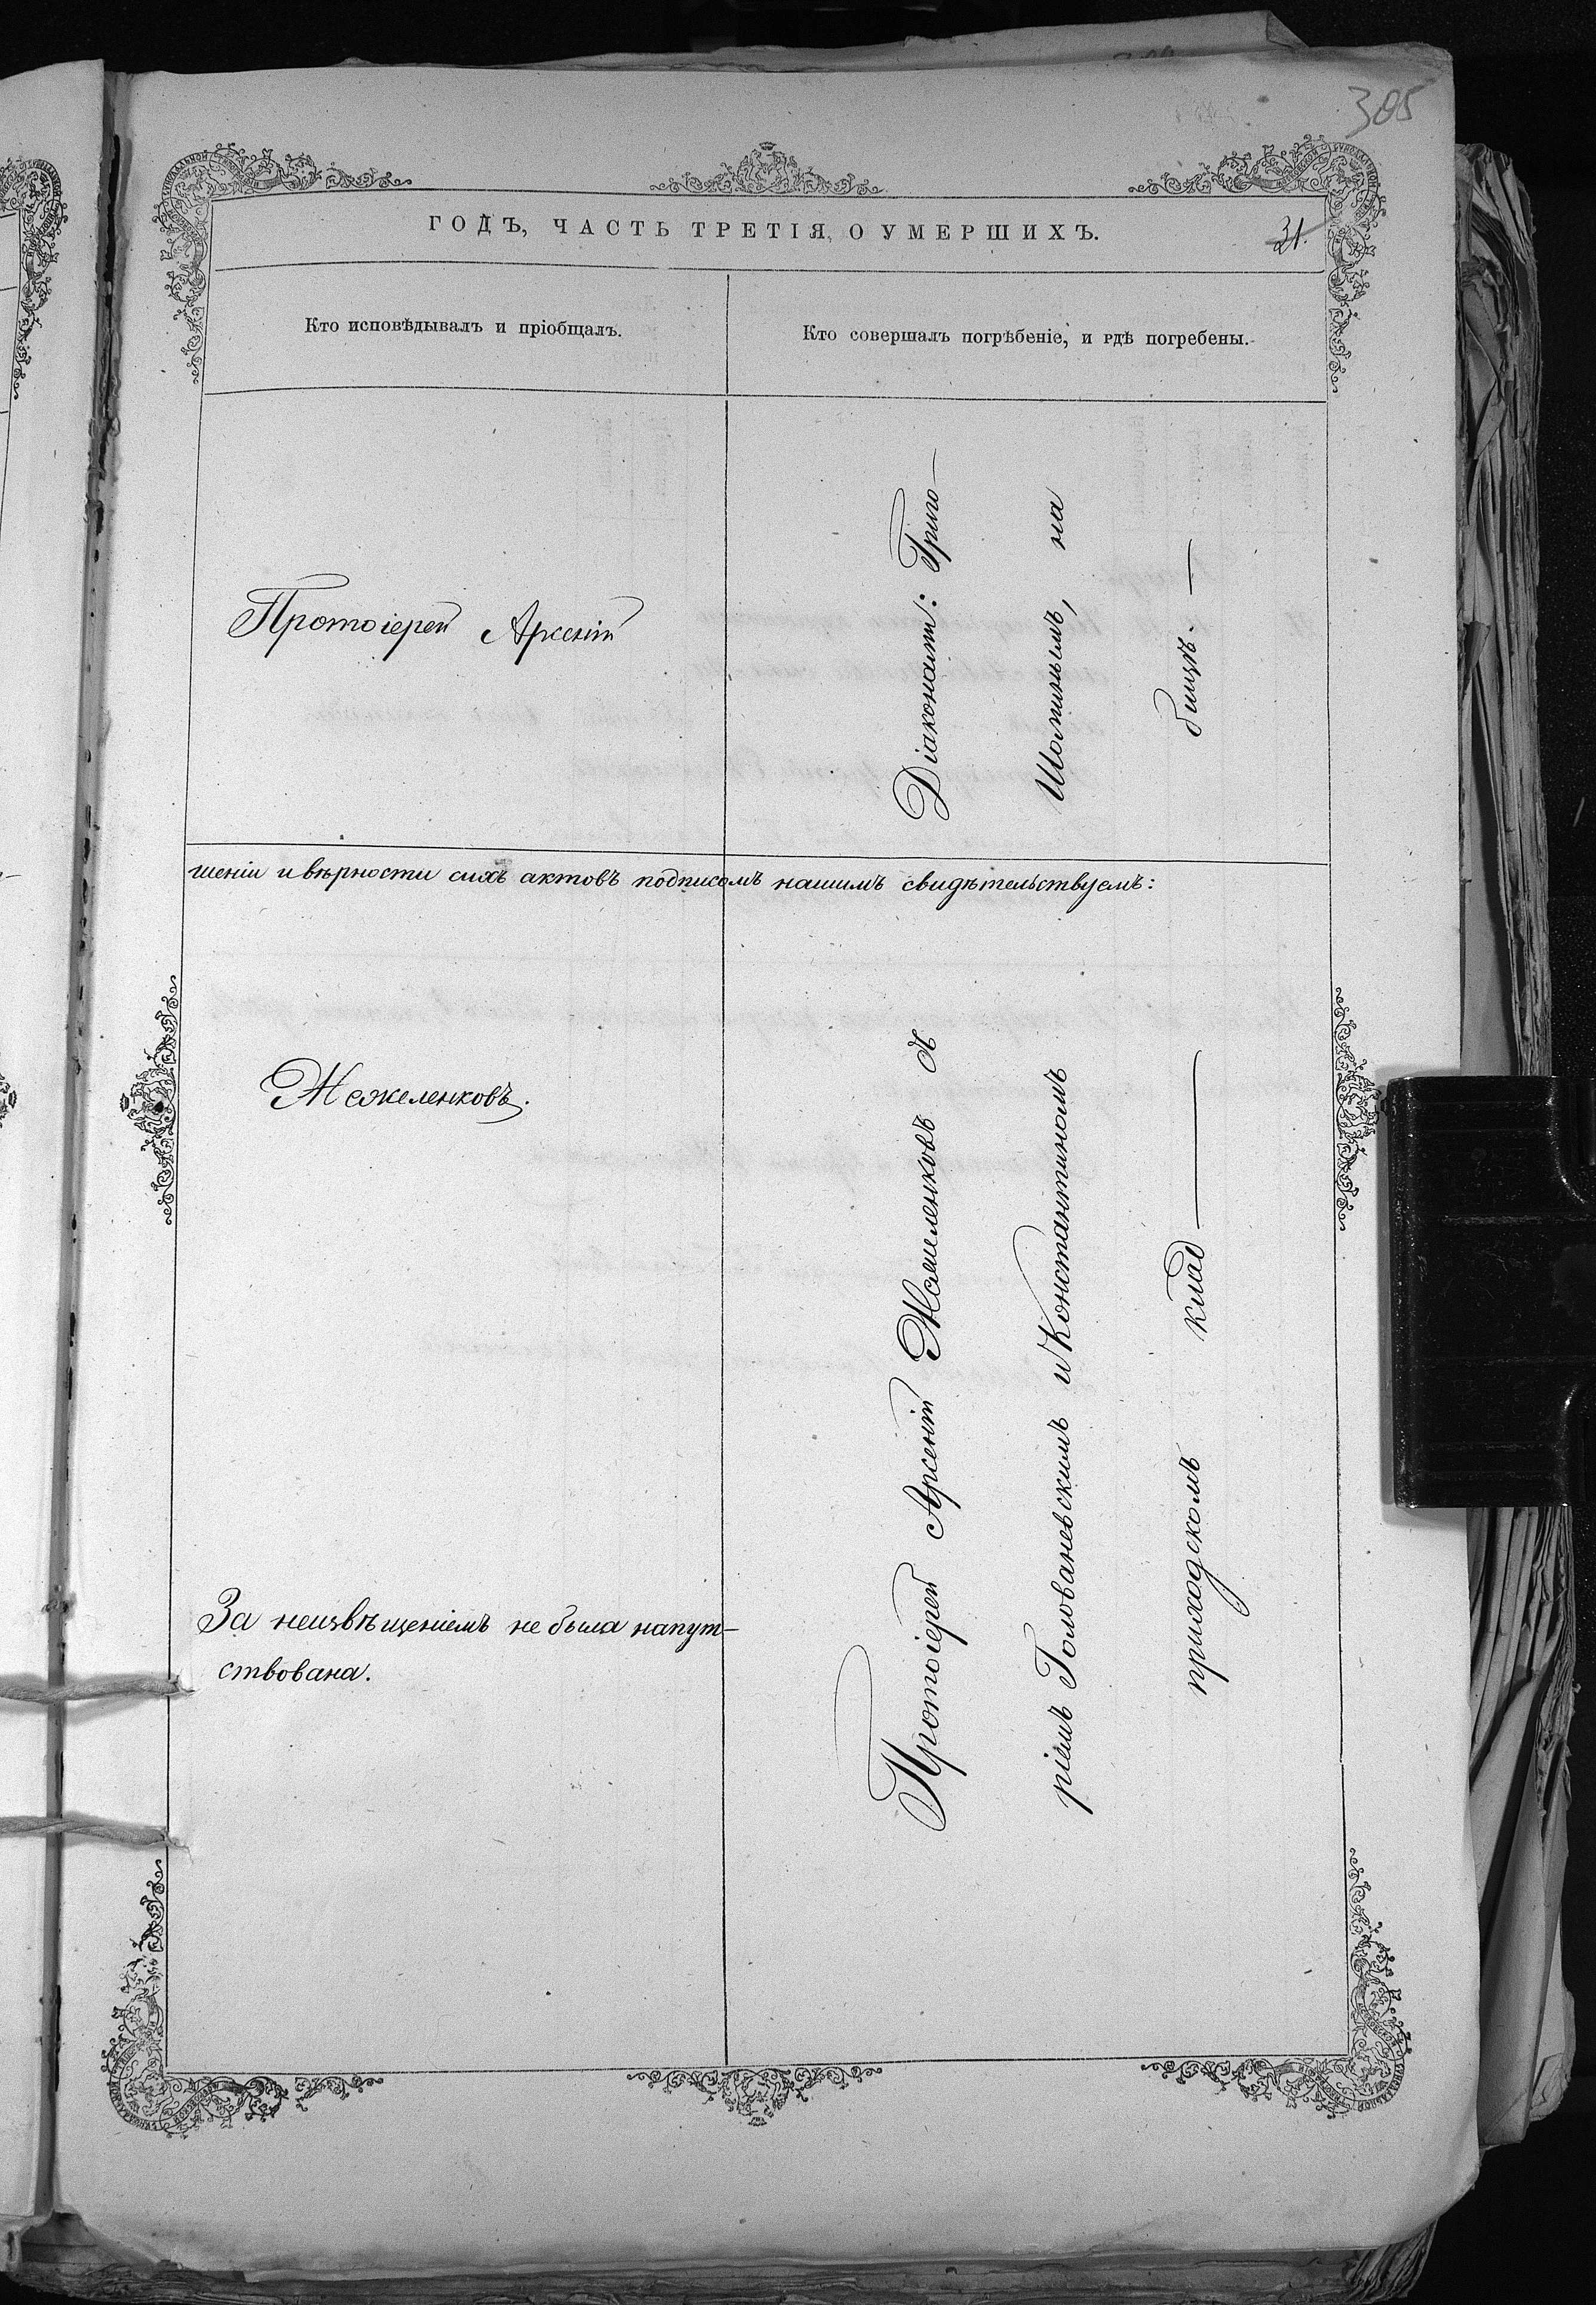 385
ГОДЪ, ЧАСТЬ ТРЕТІЯ, О УМЕРШИХЪ.
31.
Кто исповѣдывалъ и пріобщалъ.
Кто совершалъ погрѣбеніе, и гдѣ погребены.
Протоіерей Арсеній
шеніи и вѣрности сихъ актовъ подписомъ нашимъ свидѣтельствуемъ:
Жежеленковъ.
За неизвѣщеніемъ не была напут-
ствована.
Протоіерей Арсеній Жежеленковъ с Діаконами: Григо-
ріемъ Голованевскимъ и Константиномъ Шоминымъ, на
приходскомъ клад — бищѣ. —